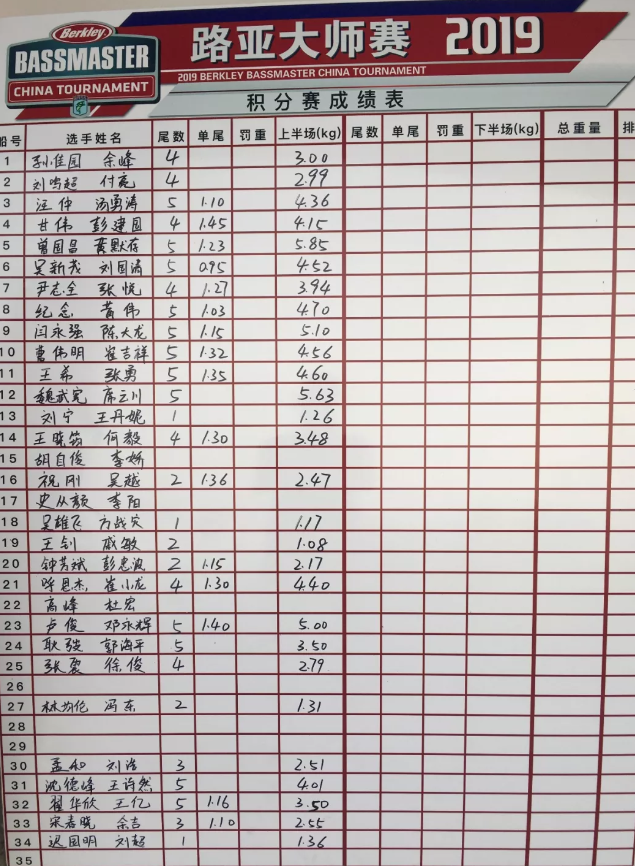 Berkley
BASSMASTER
CHINA TOURNAMENT
路亚大师赛 2019
2019 BERKLEY BASSMASTER CHINA TOURNAMENT
积分赛成绩表
船号 选手姓名 尾数 单尾 罚重 上半场(kg) 尾数 单尾 罚重 下半场(kg) 总重量 排
1 孙佳园 余峰 4 3.00
2 刘鸣超 付亮 4 2.99
3 汪仲 汤勇涛 5 1.10 4.36
4 甘伟 彭建国 4 1.45 4.15
5 曾国昌 黄默莅 5 1.23 5.85
6 吴新茂 刘国涛 5 0.95 4.52
7 尹志全 张悦 4 1.27 3.94
8 纪念 黄伟 5 1.03 4.70
9 闫永强 陈大龙 5 1.15 5.10
10 曹伟明 崔吉祥 5 1.32 4.56
11 王希 张勇 5 1.35 4.60
12 魏武宪 席云川 5 5.63
13 刘宁 王丹妮 1 1.26
14 王晓筠 何毅 4 1.30 3.48
15 胡自俊 李娇
16 祝刚 吴越 2 1.36 2.47
17 史从颜 李阳
18 吴雄飞 方战安 1 1.17
19 王钊 戚敏 2 1.08
20 钟芳斌 彭惠波 2 1.15 2.17
21 呼恩杰 崔小龙 4 1.30 4.40
22 高峰 杜宏
23 卢俊 邓永辉 5 1.40 5.00
24 耿强 郭海平 5 3.50
25 张震 徐俊 4 2.79
26
27 林均伦 冯东 2 1.31
28
29
30 孟和 刘浩 3 2.51
31 沈德峰 王许然 5 4.01
32 翟华欣 王亿 5 1.16 3.50
33 宋春晓 余吉 3 1.10 2.55
34 迟国明 刘超 1 1.36
35